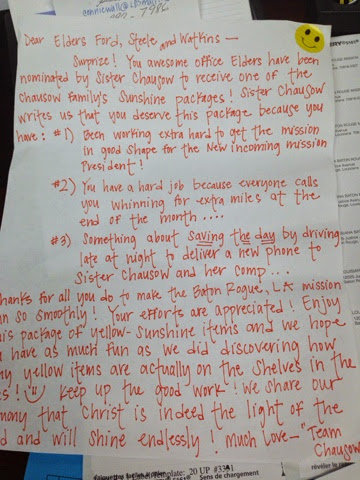 Dear Elders Ford, Steele and Watkins —
Surprize! You awesome office Elders have been
nominated by Sister Chausow to receive one of the
Chausow Family's Sunshine packages! Sister Chausow
writes us that you deserve this package because you
have: #1) Been working extra hard to get the mission
in good shape for the New incoming mission
President!
#2) You have a hard job because everyone calls
you whinning for extra miles at the
end of the month ....
#3) Something about saving the day by driving
late at night to deliver a new phone to
Sister Chausow and her comp ...
hanks for all you do to make the Baton Rogue, LA mission
n so smoothly! Your efforts are appreciated! Enjoy
is package of yellow-sunshine items and we hope
have as much fun as we did discovering how
y yellow items are actually on the shelves in the
s! Keep up the good work! We share our
mony that Christ is indeed the light of the
d and will shine endlessly! Much Love — "Team
Chausow
Template: 20 UP #3351
Sens de chargement
révéler le